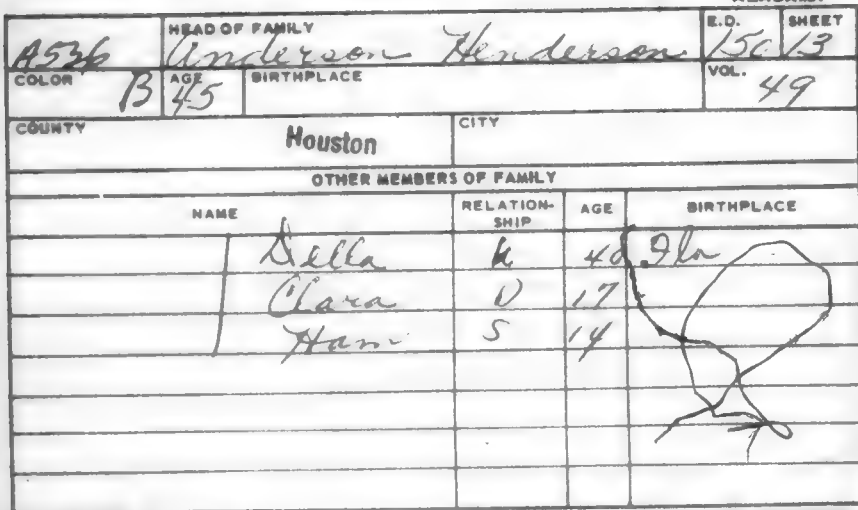 HEAD OF FAMILY E.D. SHEET
A536 Anderson Henderson 150 13
COLOR B AGE 45 BIRTHPLACE VOL. 49
COUNTY Houston CITY
OTHER MEMBERS OF FAMILY
NAME RELATION-SHIP AGE BIRTHPLACE
Della 40 Fla
Clara D 17
Ham S 14